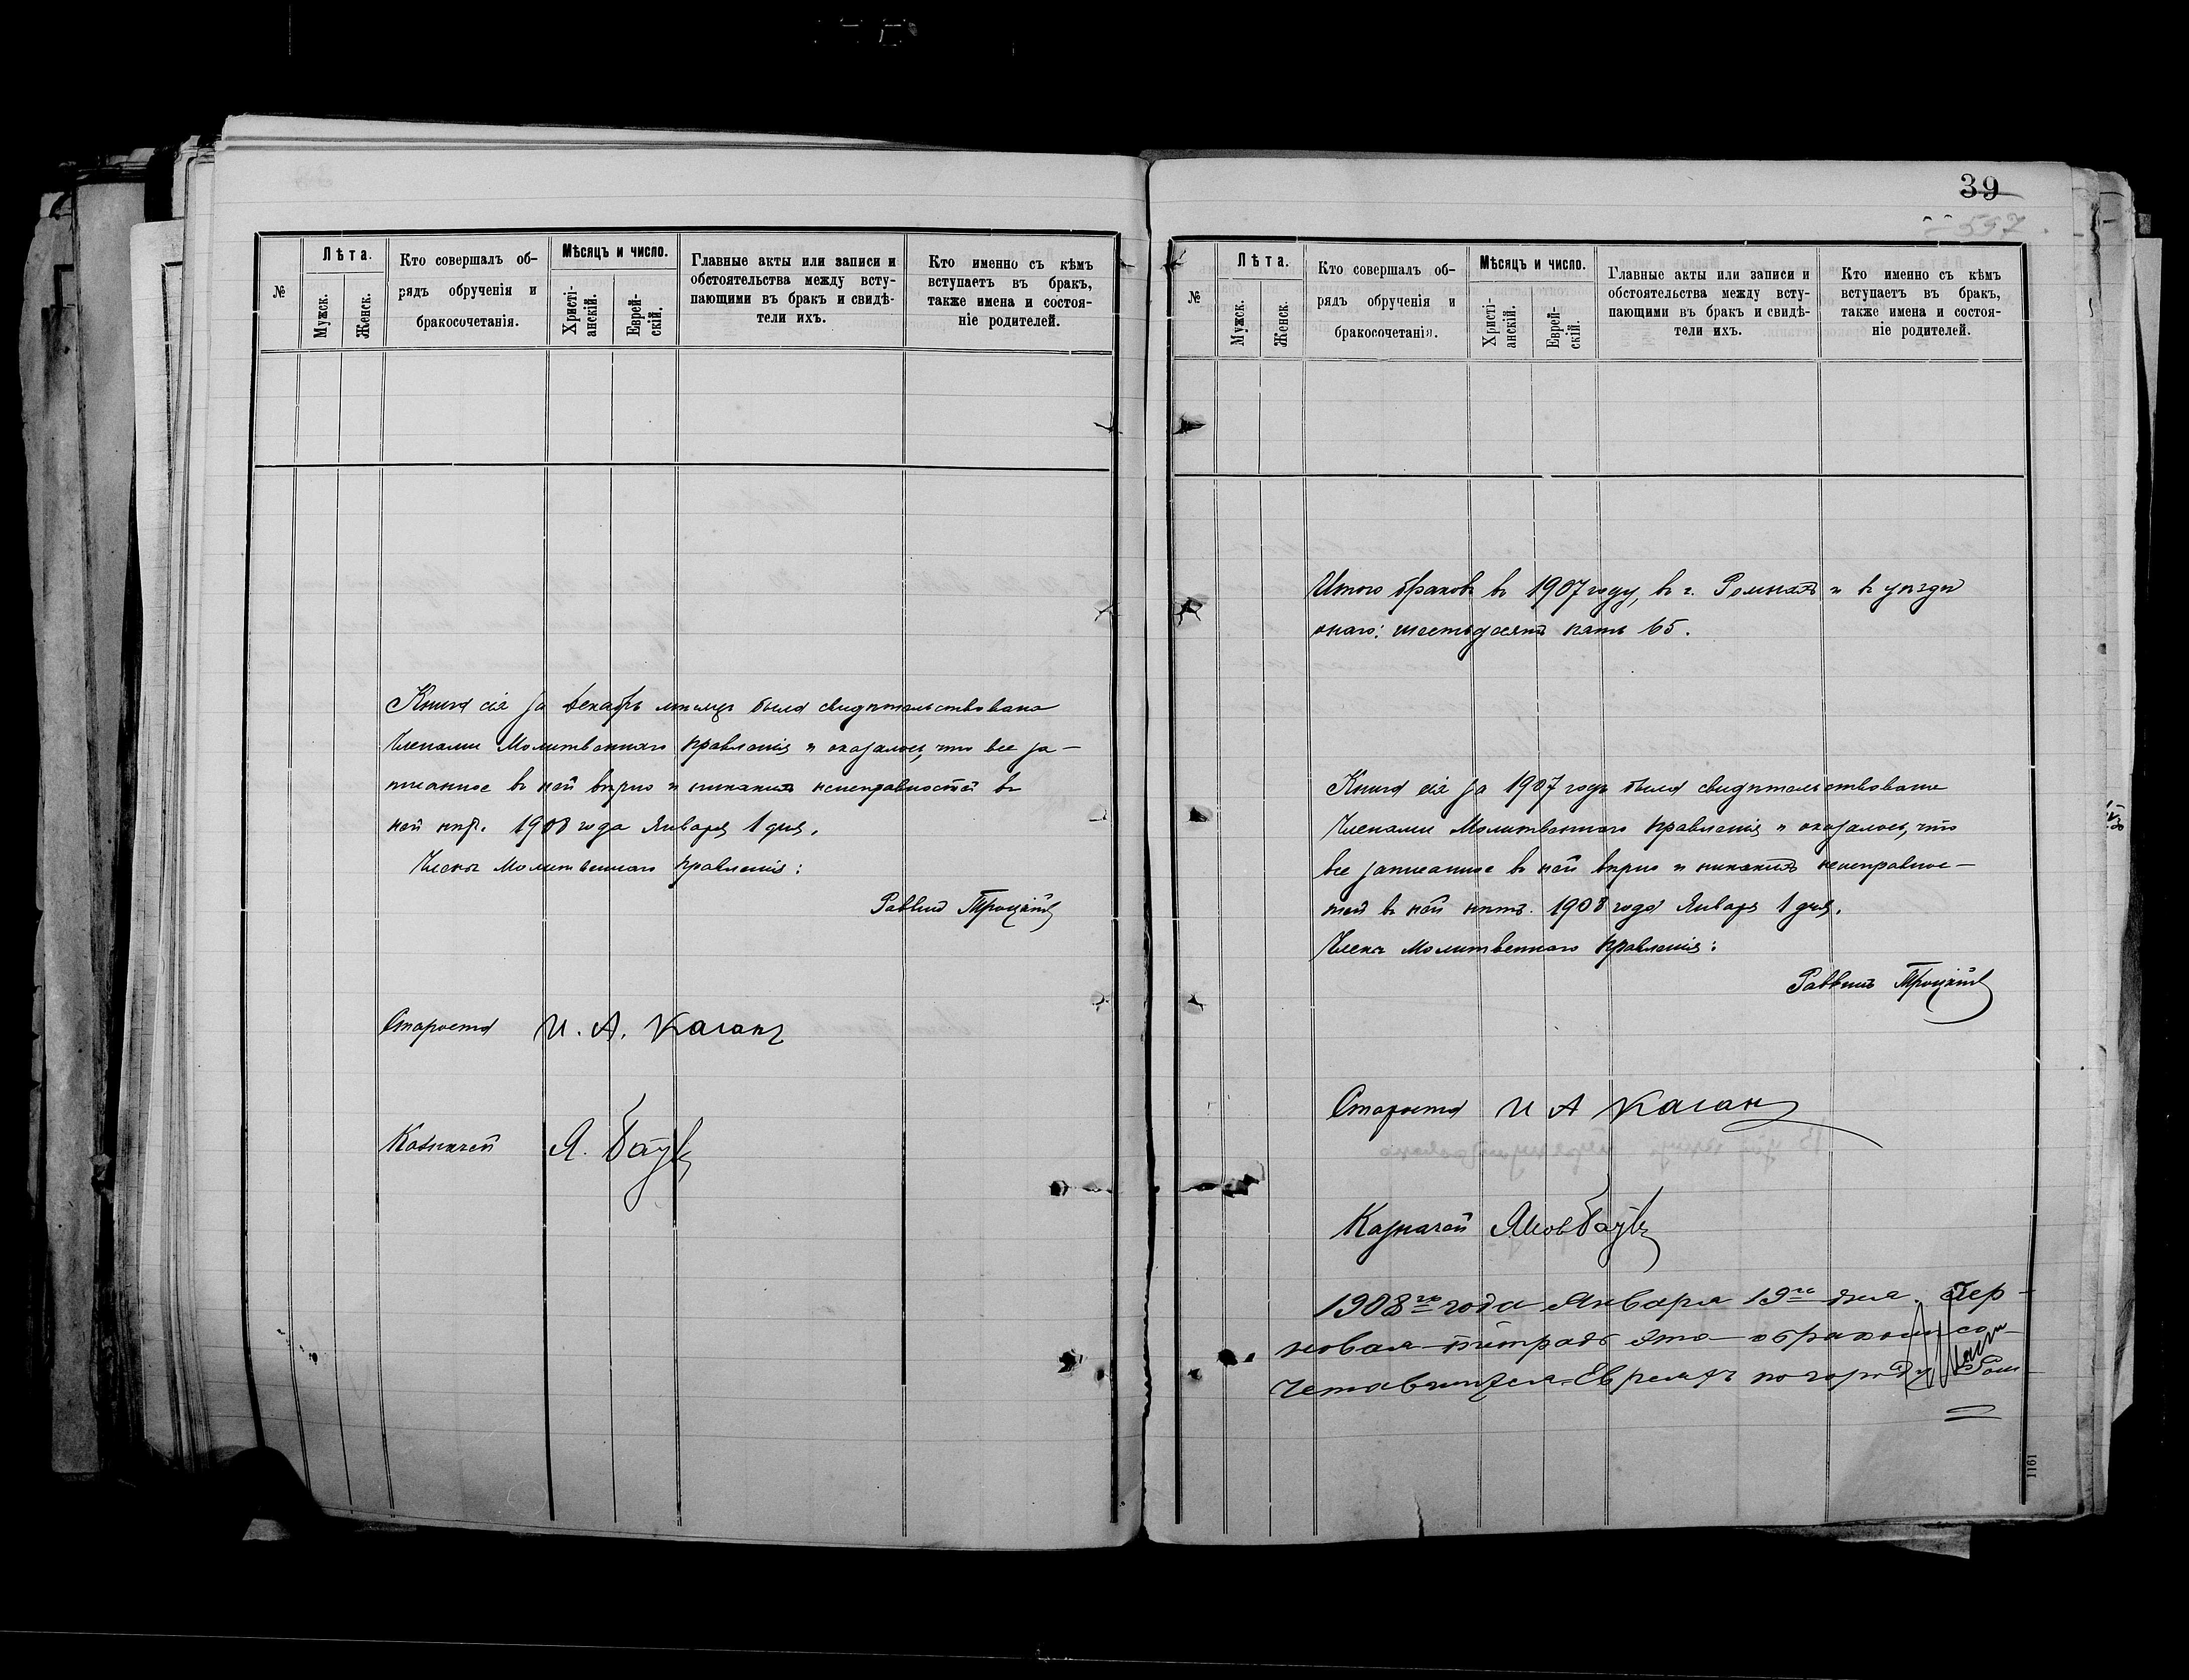 №
Лѣта.
Мужск.
Женск.
Кто совершалъ об-
рядъ обрученія и
бракосочетанія.
Мѣсяцъ и число.
Христі-
анскій.
Еврей-
скій.
Главные акты или записи и
обстоятельства между всту-
пающими въ бракъ и свидѣ-
тели ихъ.
Кто именно съ кѣмъ
вступаетъ въ бракъ,
также имена и состоя-
ніе родителей.
Книга сія за Декабрь мѣсяцъ была свидѣтельствована
Членами Молитвеннаго Правленія и оказалось, что все за-
писанное въ ней вѣрно и никакихъ неисправностей въ
ней нѣт. 1908 года Января 1 дня.
Члены Молитвеннаго Правленія:
Раввинъ Троцкій
Староста И. А. Каганъ
Казначей Я.
39
597
№
Лѣта.
Мужск.
Женск.
Кто совершалъ об-
рядъ обрученія и
бракосочетанія.
Мѣсяцъ и число.
Христі-
анскій.
Еврей-
скій.
Главные акты или записи и
обстоятельства между всту-
пающими въ бракъ и свидѣ-
тели ихъ.
Кто именно съ кѣмъ
вступаетъ въ бракъ,
также имена и состоя-
ніе родителей.
Итого браковъ въ 1907 году, въ г. Ромнахъ и въ уѣздѣ
онаго: шестьдесятъ пять 65.
Книга сія за 1907 годъ была свидѣтельствована
Членами Молитвеннаго Правленія и оказалось, что
все записанное въ ней вѣрно и никакихъ неисправнос-
тей въ ней нѣтъ. 1908 года Января 1 дня.
Члены Молитвеннаго Правленія:
Раввинъ Троцкій
Староста И А Каганъ
Казначей Яков
1908го года Января 19го дня.
тетрадь эта о бракосо-
Евреяхъ по городу Ром-
1161